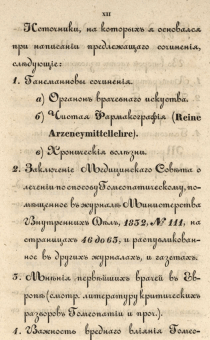 XII
Источники, на которыхъ я основался
при написаніи предлежащаго сочиненія,
слѣдующіе:
1. Ганеманновы сочиненія.
а) Органонъ врачебнаго искуства.
б) Чистая Фармакографія (Reine
Arzeneymittellehre).
в) Хроническія болѣзни.
2. Заключеніе Медицинскаго Совѣта о
леченіи по способу Гомеопатическому, по-
мѣщенное въ журналѣ Министерства
Внутреннихъ Дѣлъ, 1832, № III, на
страницахъ 46 до 63, и распубликован-
ное въ другихъ журналахъ, и газетахъ.
3. Мнѣнія первѣйшихъ врачей въ Ев-
ропѣ (смотр. литературу критическихъ
разборовъ Гомеопатіи и проч.).
4. Важность вреднаго вліянія Гомео-